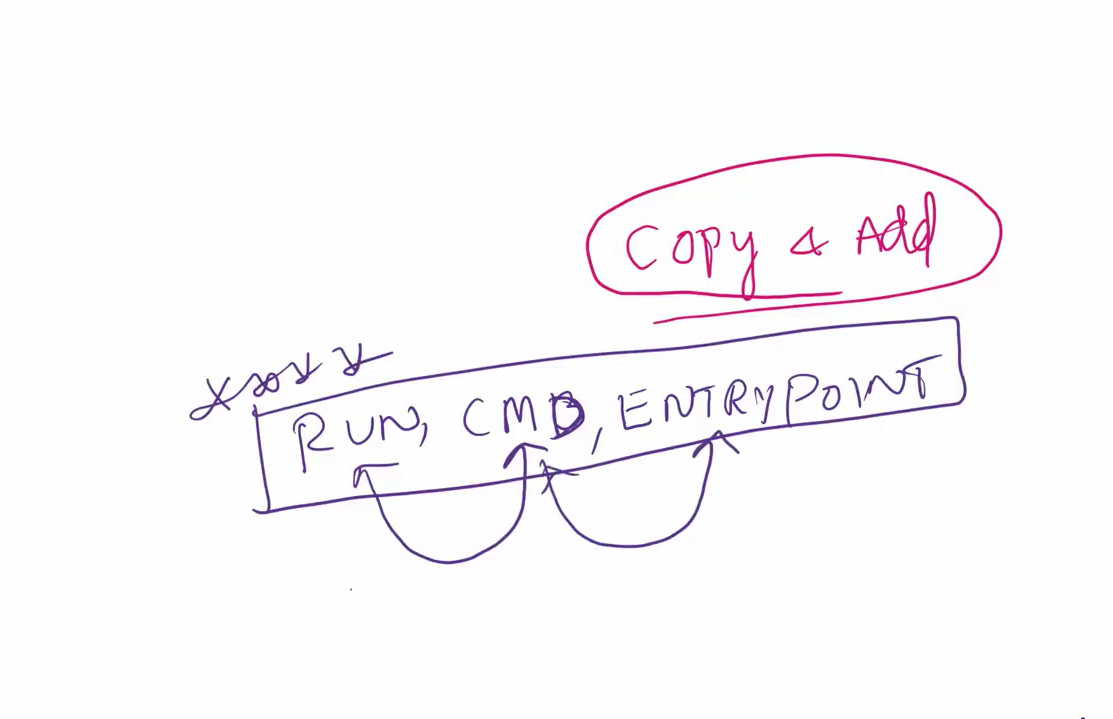 Copy & Add
RUN, CMD, ENTRYPOINT